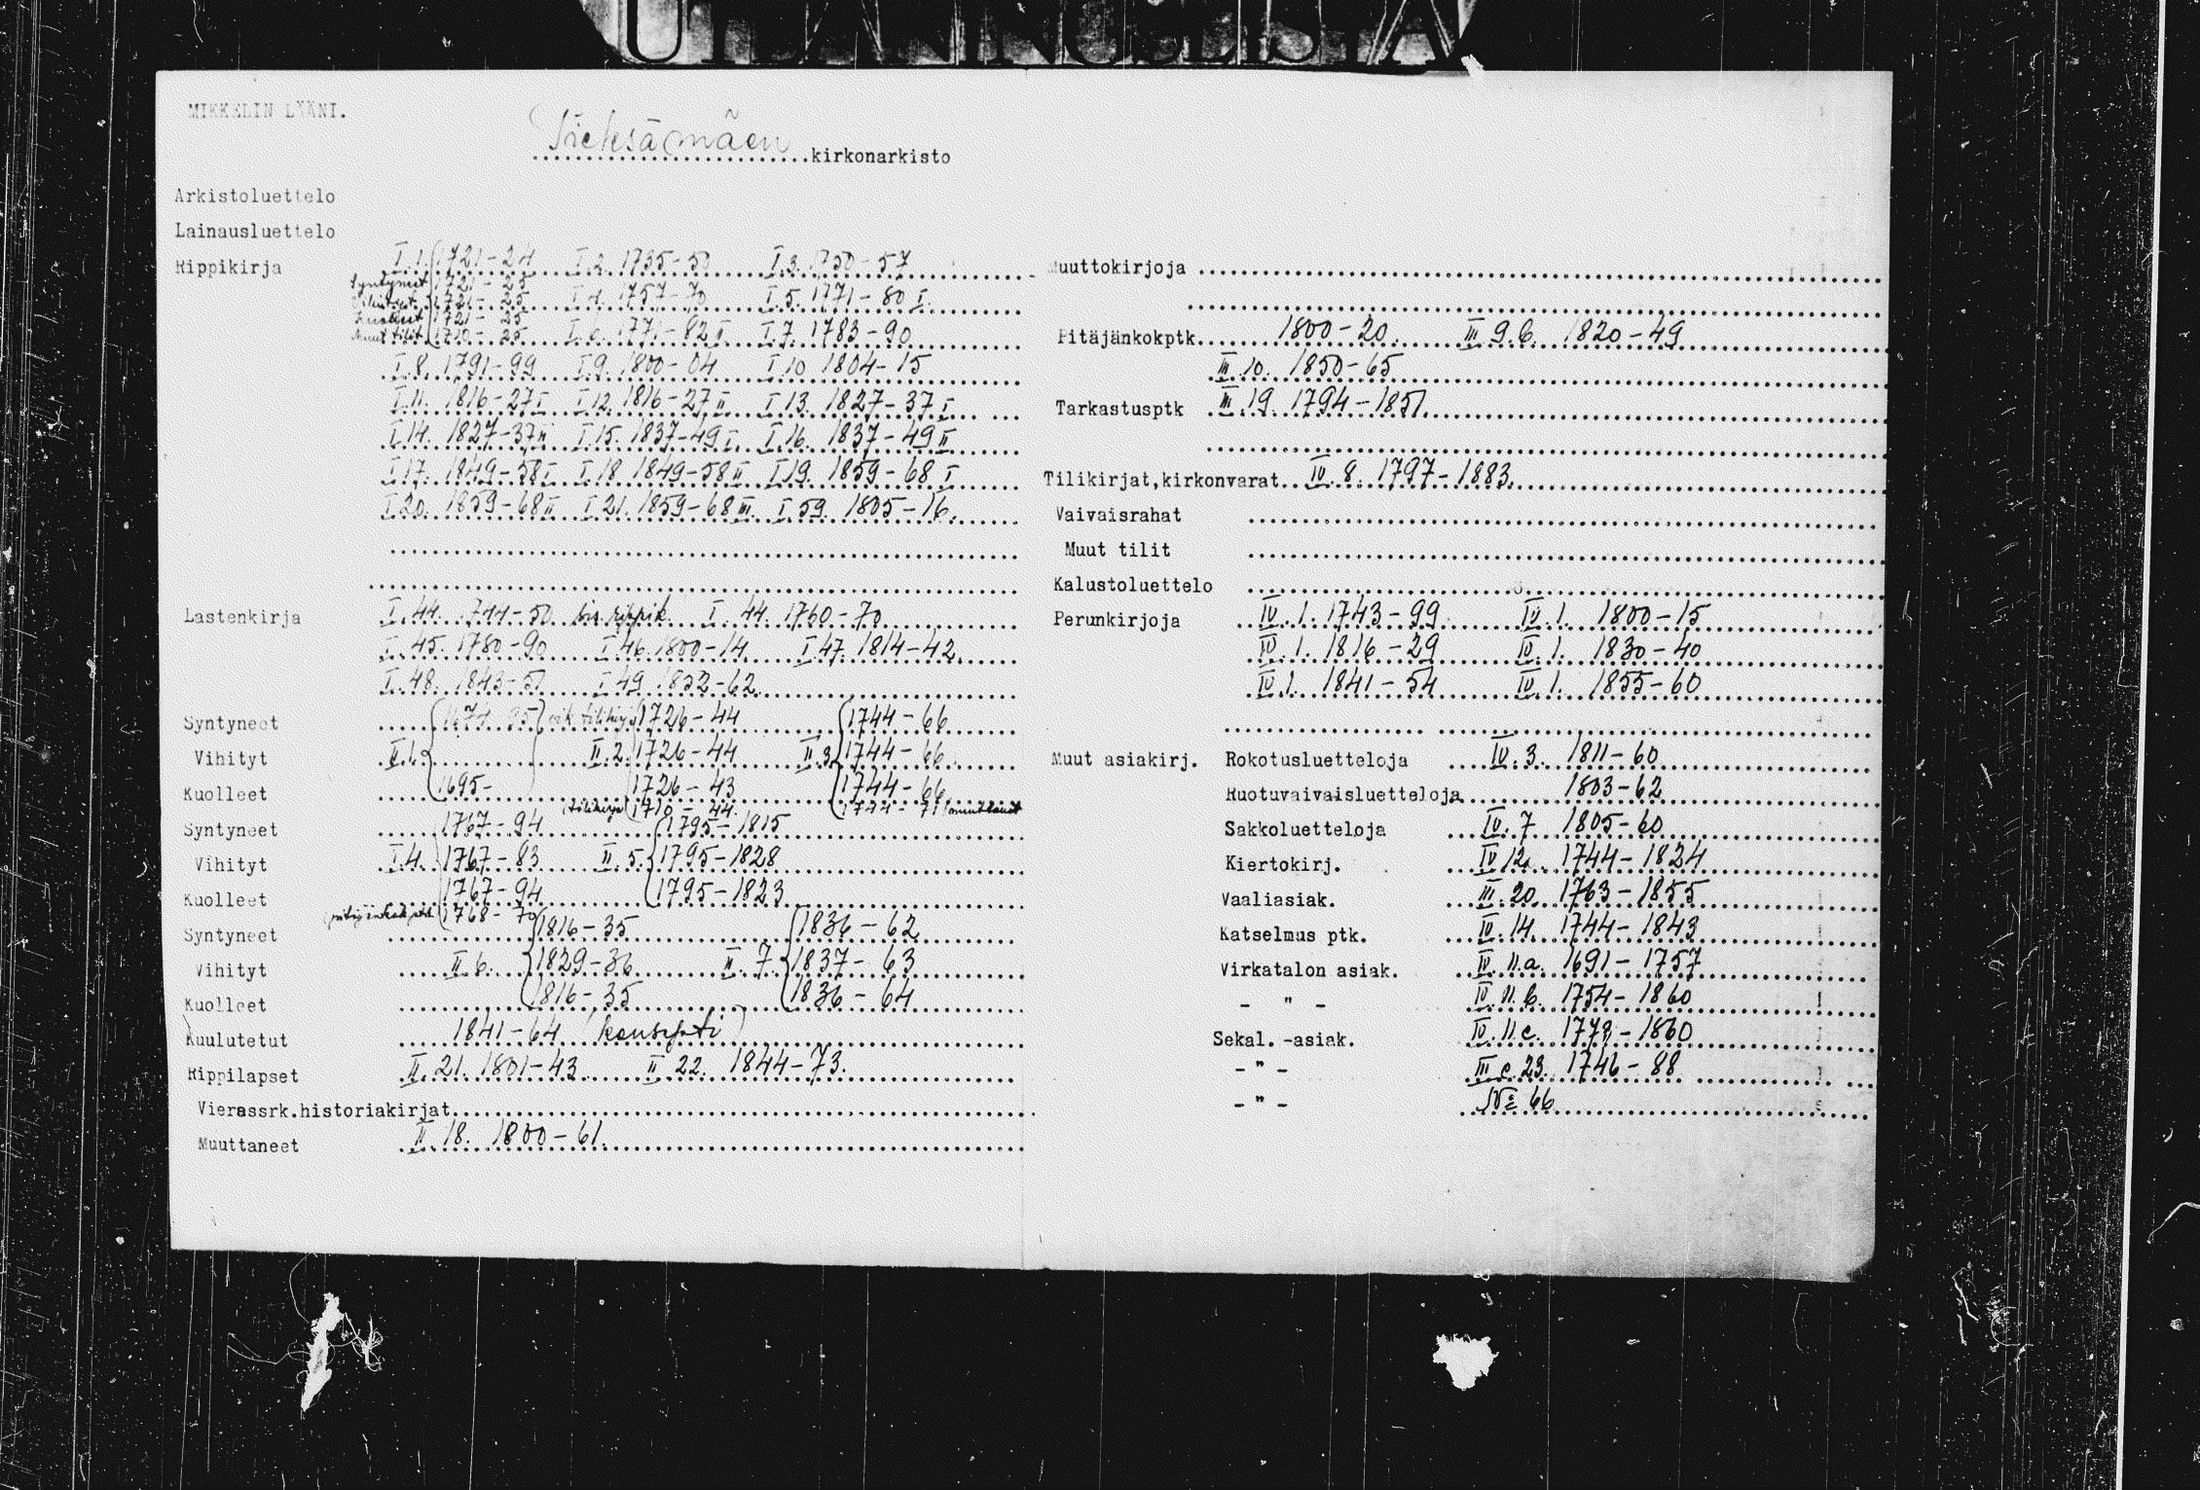 MIKKELIN LÄÄNI.
Pieksämäen kirkonarkisto
Arkistoluettelo
Lainausluettelo
Rippikirja I.1. 1721-24 I.2. 1735-50 I.3. 1750-57
Syntyneet 1721-25
Vihityt 1721-25 I.4. 1757-70 I.5. 1771-80 I.
Kuolleet 1721-25
Muut tilit 1710-25 I.6. 1771-82 II I.7. 1783-90
I.8. 1791-99 I.9. 1800-04 I.10 1804-15
I.11. 1816-27 I I.12. 1816-27 II I.13. 1827-37 I
I.14. 1827-37 II I.15. 1837-49 I. I.16. 1837-49 II
I.17. 1849-58 I I.18 1849-58 II I.19. 1859-68 I
I.20. 1859-68 II I.21. 1859-68 III. I.59. 1805-16.
Lastenkirja I.44. 1744-50 rippik. I.44. 1760-70
I.45. 1780-90 I.46. 1800-14 I.47. 1814-42.
I.48. 1843-51 I.49. 1852-62
Syntyneet 1726-44 1744-66
Vihityt II.1. II.2. 1726-44 II.3. 1744-66
Kuolleet 1695- 1726-43 1744-66
tilikirja 1710-44. 1744-71
Syntyneet 1767-94 1795-1815
Vihityt I.4. 1767-83 II.5. 1795-1828
Kuolleet 1767-94 1795-1823
1768-70
Syntyneet 1816-35 1836-62
Vihityt II.6. 1829-36 II.7. 1837-63
Kuolleet 1816-35 1836-64
Kuulutetut 1841-64 (konsepti)
Rippilapset II.21. 1801-43 II.22. 1844-73.
Vierassrk.historiakirjat
Muuttaneet II.18. 1800-61.
Muuttokirjoja
Pitäjänkokptk. 1800-20. III 9.b. 1820-49
III.10. 1850-65
Tarkastusptk III.19. 1794-1851.
Tilikirjat,kirkonvarat. IV.8. 1797-1883.
Vaivaisrahat
Muut tilit
Kalustoluettelo
Perunkirjoja IV.1. 1743-99 IV.1. 1800-15
IV.1. 1816-29 IV.1. 1830-40
IV.1. 1841-54 IV.1. 1855-60
Muut asiakirj. Rokotusluetteloja IV.3. 1811-60
Ruotuvaivaisluetteloja 1803-62
Sakkoluetteloja IV.7 1805-60
Kiertokirj. IV 12. 1744-1824
Vaaliasiak. III.20. 1763-1855
Katselmus ptk. IV.14. 1744-1843
Virkatalon asiak. IV.11.a. 1691-1757
- " - IV.11.b. 1754-1860
Sekal. -asiak. IV.11.c. 1772-1860
- " - III c.23. 1746-88
- " - No 66